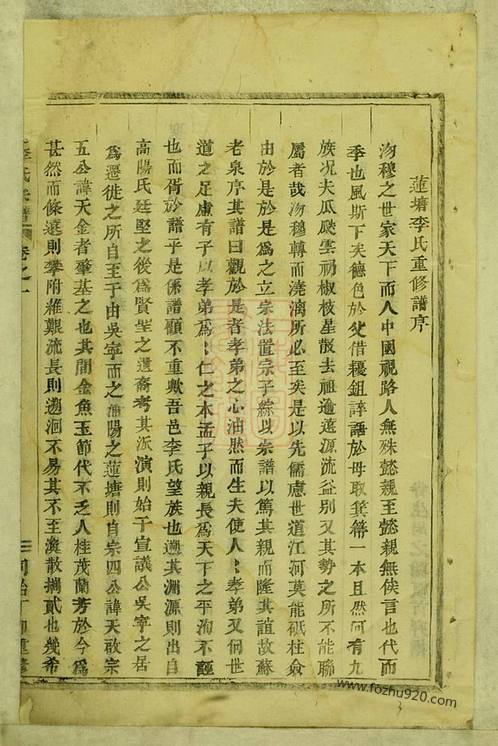 蓮塘李氏重修譜序
沕穆之世家天下而人中國視路人無殊懿親至懿親無俟言也代而
季也風斯下矣德色於父借耰鉏誶語於母取箕箒一本且然何有九
族况夫瓜瓞雲礽椒枝星散去祖逾遠源流益別又其勢之所不能聯
屬者哉沕穆轉而澆漓所必至矣是以先儒慮世道江河莫能砥柱僉
由於是於是為之立宗法置宗子綜以宗譜以篤其親而隆其誼故蘇
老泉序其譜曰觀於是者孝弟之心油然而生夫使人〻孝弟又何世
道之足慮有子以孝弟為〻仁之本孟子以親長為天下之平洵不誣
也而胥於譜乎是係譜顧不重歟吾邑李氏望族也遡其淵源則出自
高陽氏廷堅之後為賢聖之遺裔考其派演則始于宣議公吳寧之居
為遷徙之所自至于由吳寧而之浦陽之蓮塘則自宗四公諱天敢宗
五公諱天金者肇基之也其間金魚玉節代不乏人桂茂蘭芳於今為
甚然而條遠則攀附雜艱流長則遡洄不易其不至渙散攜貳也幾希
李氏宗譜 卷之一
www.fozhu920.com